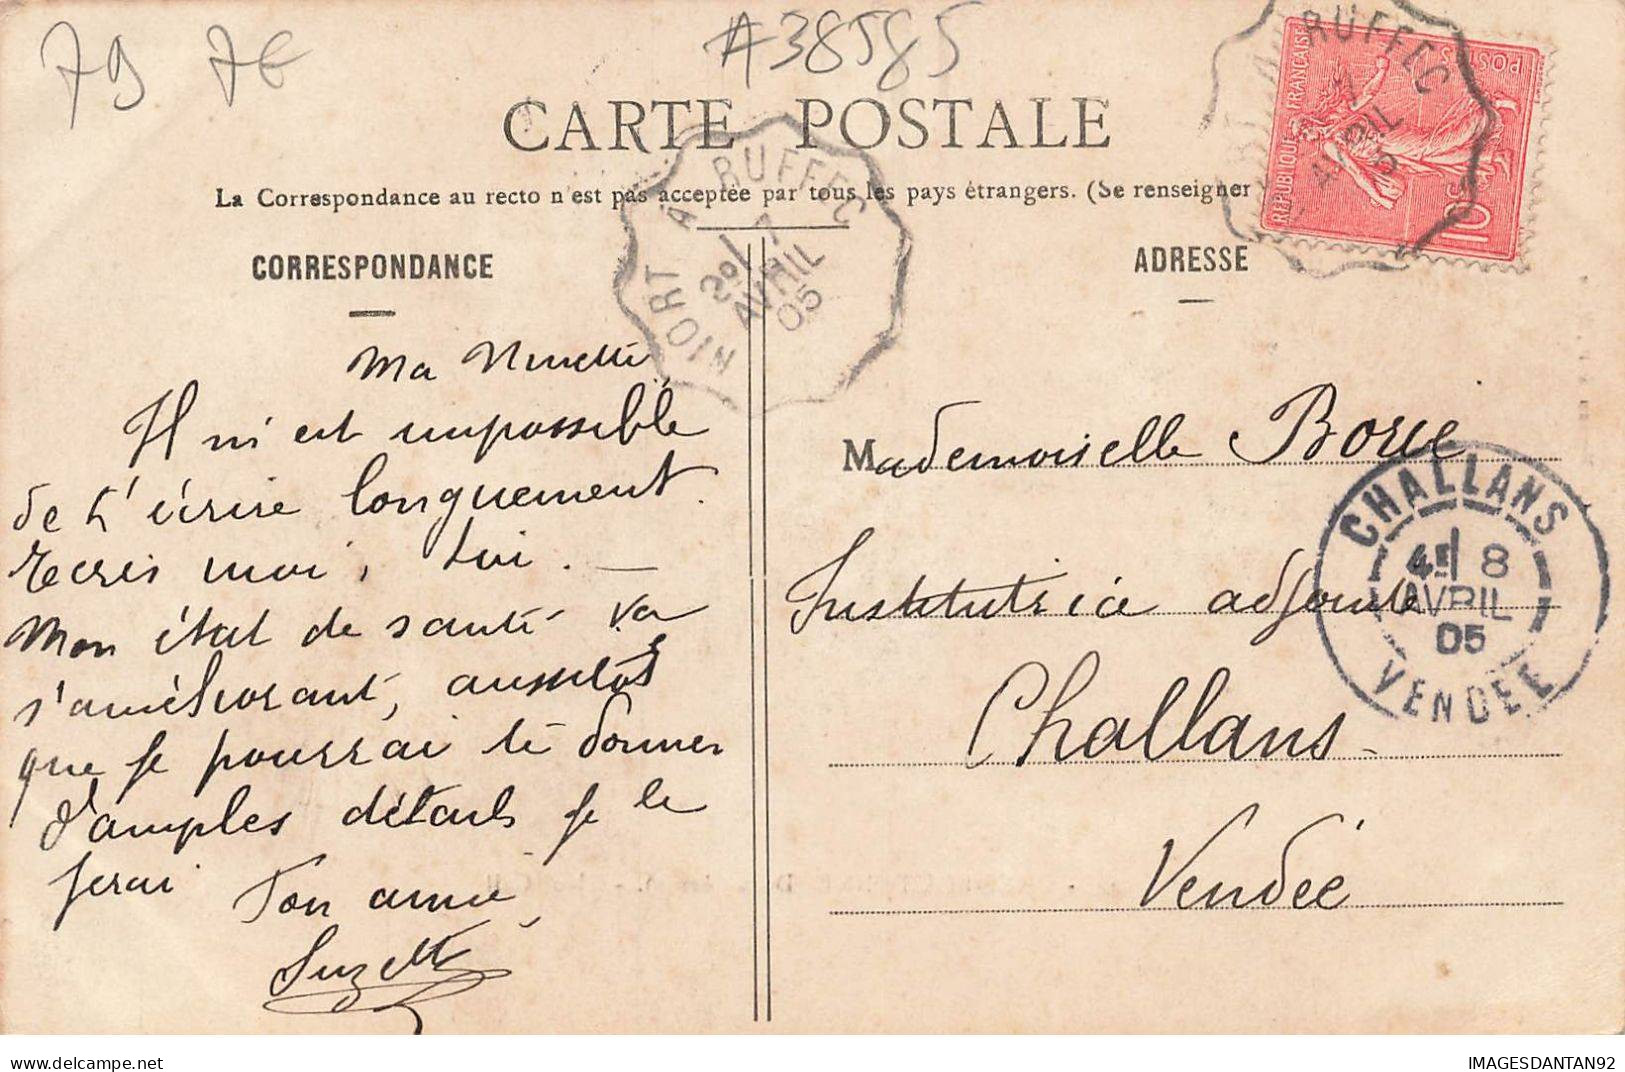 79 7E
A38585
CARTE POSTALE
La Correspondance au recto n'est pas acceptée par tous les pays étrangers. (Se renseigner
CORRESPONDANCE
ADRESSE
RÉPUBLIQUE FRANÇAISE
POSTES
10c
A RUFFEC
7
AVRIL
05
NIORT A RUFFEC
2º 7
AVRIL
05
Ma Ninette,
Il m'est impossible
de t'écrire longuement.
Écris moi, toi. —
Mon état de santé va
s'améliorant, aussitôt
que je pourrai te donner
d'amples détails je le
ferai
Ton amie,
Suzette
Mademoiselle Borie
Institutrice adjointe
Challans
Vendée
CHALLANS
4E 8
AVRIL
05
VENDÉE
IMAGESDANTAN92